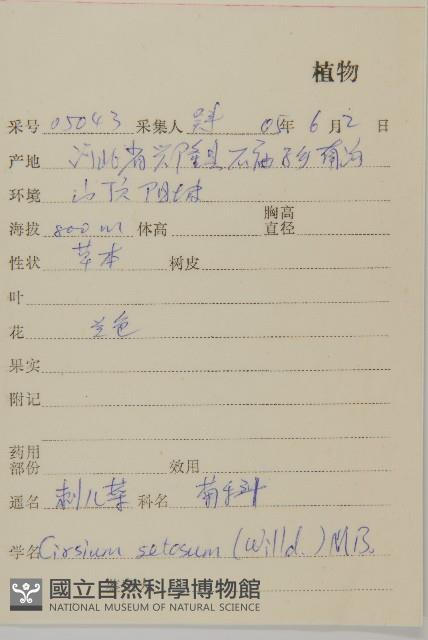 植物
采号 05043 采集人 05年 6月2日
产地 河北省兴隆县石庙子乡南沟
环境 山顶阳坡
海拔 800m 体高 胸高直径
性状 草本 树皮
叶
花 兰色
果实
附记
药用部份 效用
通名 刺儿菜 科名 菊科
学名 Cirsium setosum (Willd.) MB.
國立自然科學博物館
NATIONAL MUSEUM OF NATURAL SCIENCE